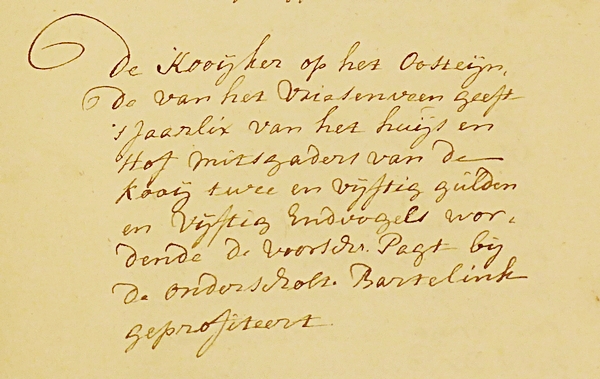 De Kooijker op het Oosteijn,
de van het Vriesenveen geeft
's Jaarlix van het huijs en
Hof mitsgaders van de
Kooij twee en vijftig gulden
en Vijftig Endvogels wor,
dende de voorschr. Pagt bij
de onderscholt. Bartelink
geprofiteert.